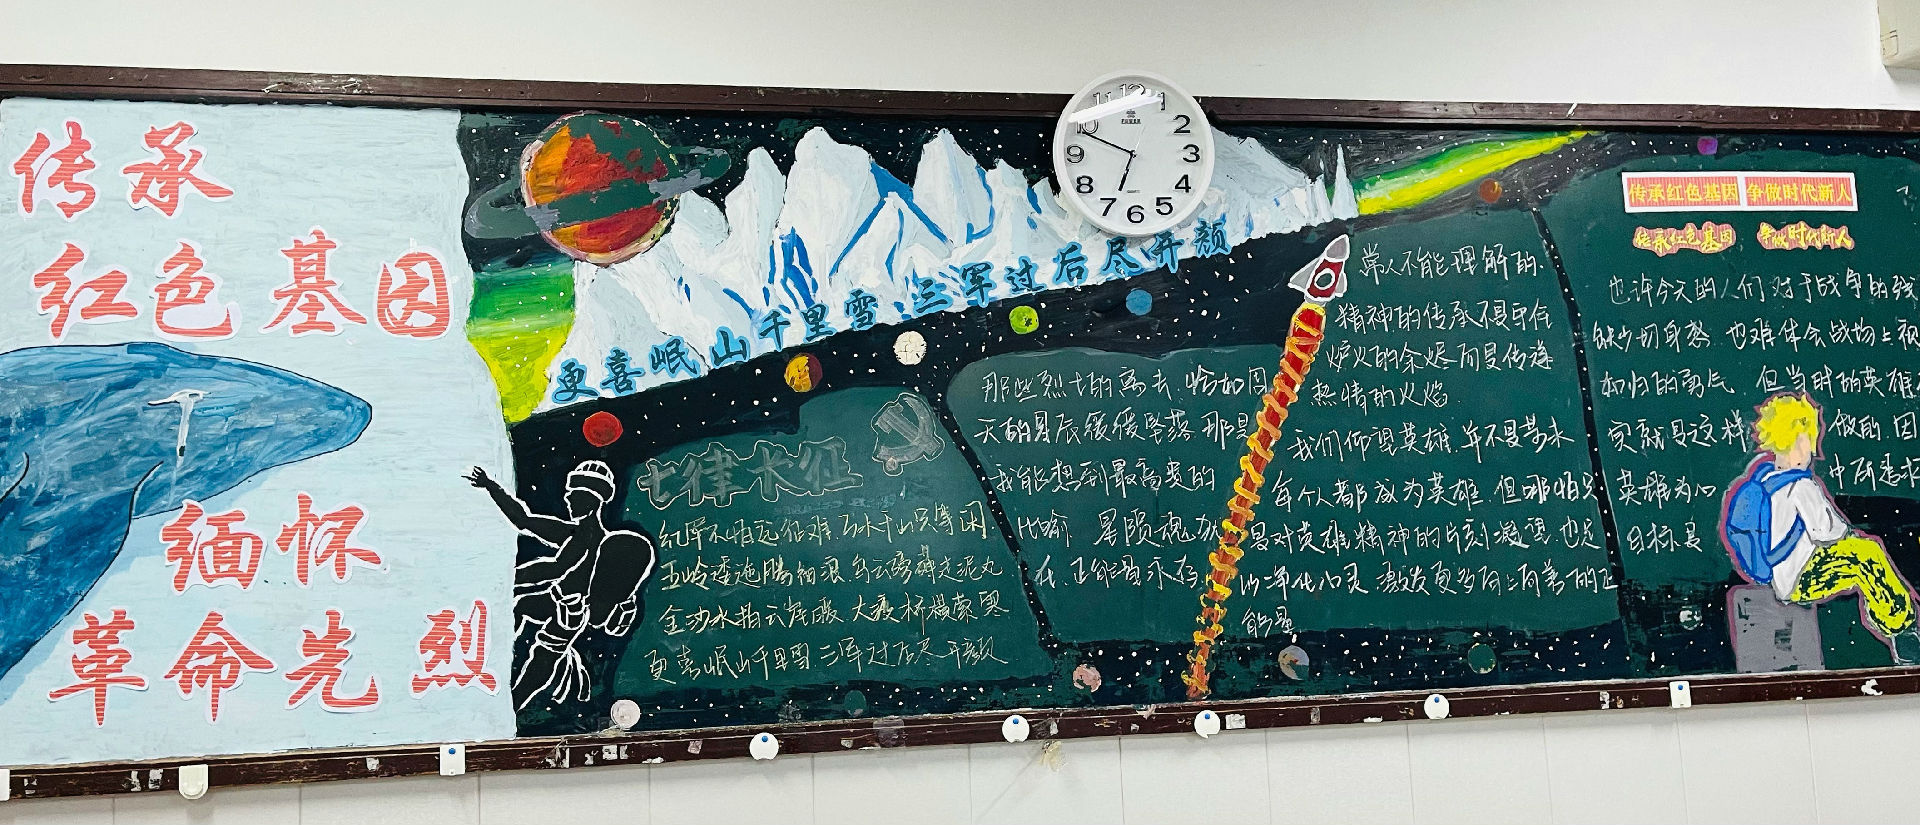 传承
红色基因
缅怀
革命先烈
更喜岷山千里雪 三军过后尽开颜
11 12 1
10 2
9 3
8 4
7 6 5
七律长征
红军不怕远征难 万水千山只等闲
五岭逶迤腾细浪 乌蒙磅礴走泥丸
金沙水拍云崖暖 大渡桥横铁索寒
更喜岷山千里雪 三军过后尽开颜
那些烈士的离去 恰如同
天的星辰缓缓坠落 那是
我能想到最高贵的
比喻 星陨魂
正能量永存
常人不能理解的.
精神的传承不是
炉火的余烬 而是传递
热情的火焰
我们仰望英雄 并不是要求
每个人都成为英雄 但哪怕只
是对英雄精神的片刻凝望 也足
以净化心灵 激发更多向上向善的正
能量
传承红色基因 争做时代新人
传承红色基因 争做时代新人
也许今天的人们对于战争的残
缺少切身感 也难体会战场上视
如归的勇气 但当时的英雄
实就是这样 做的 因
英雄为心 中所追求
目标是